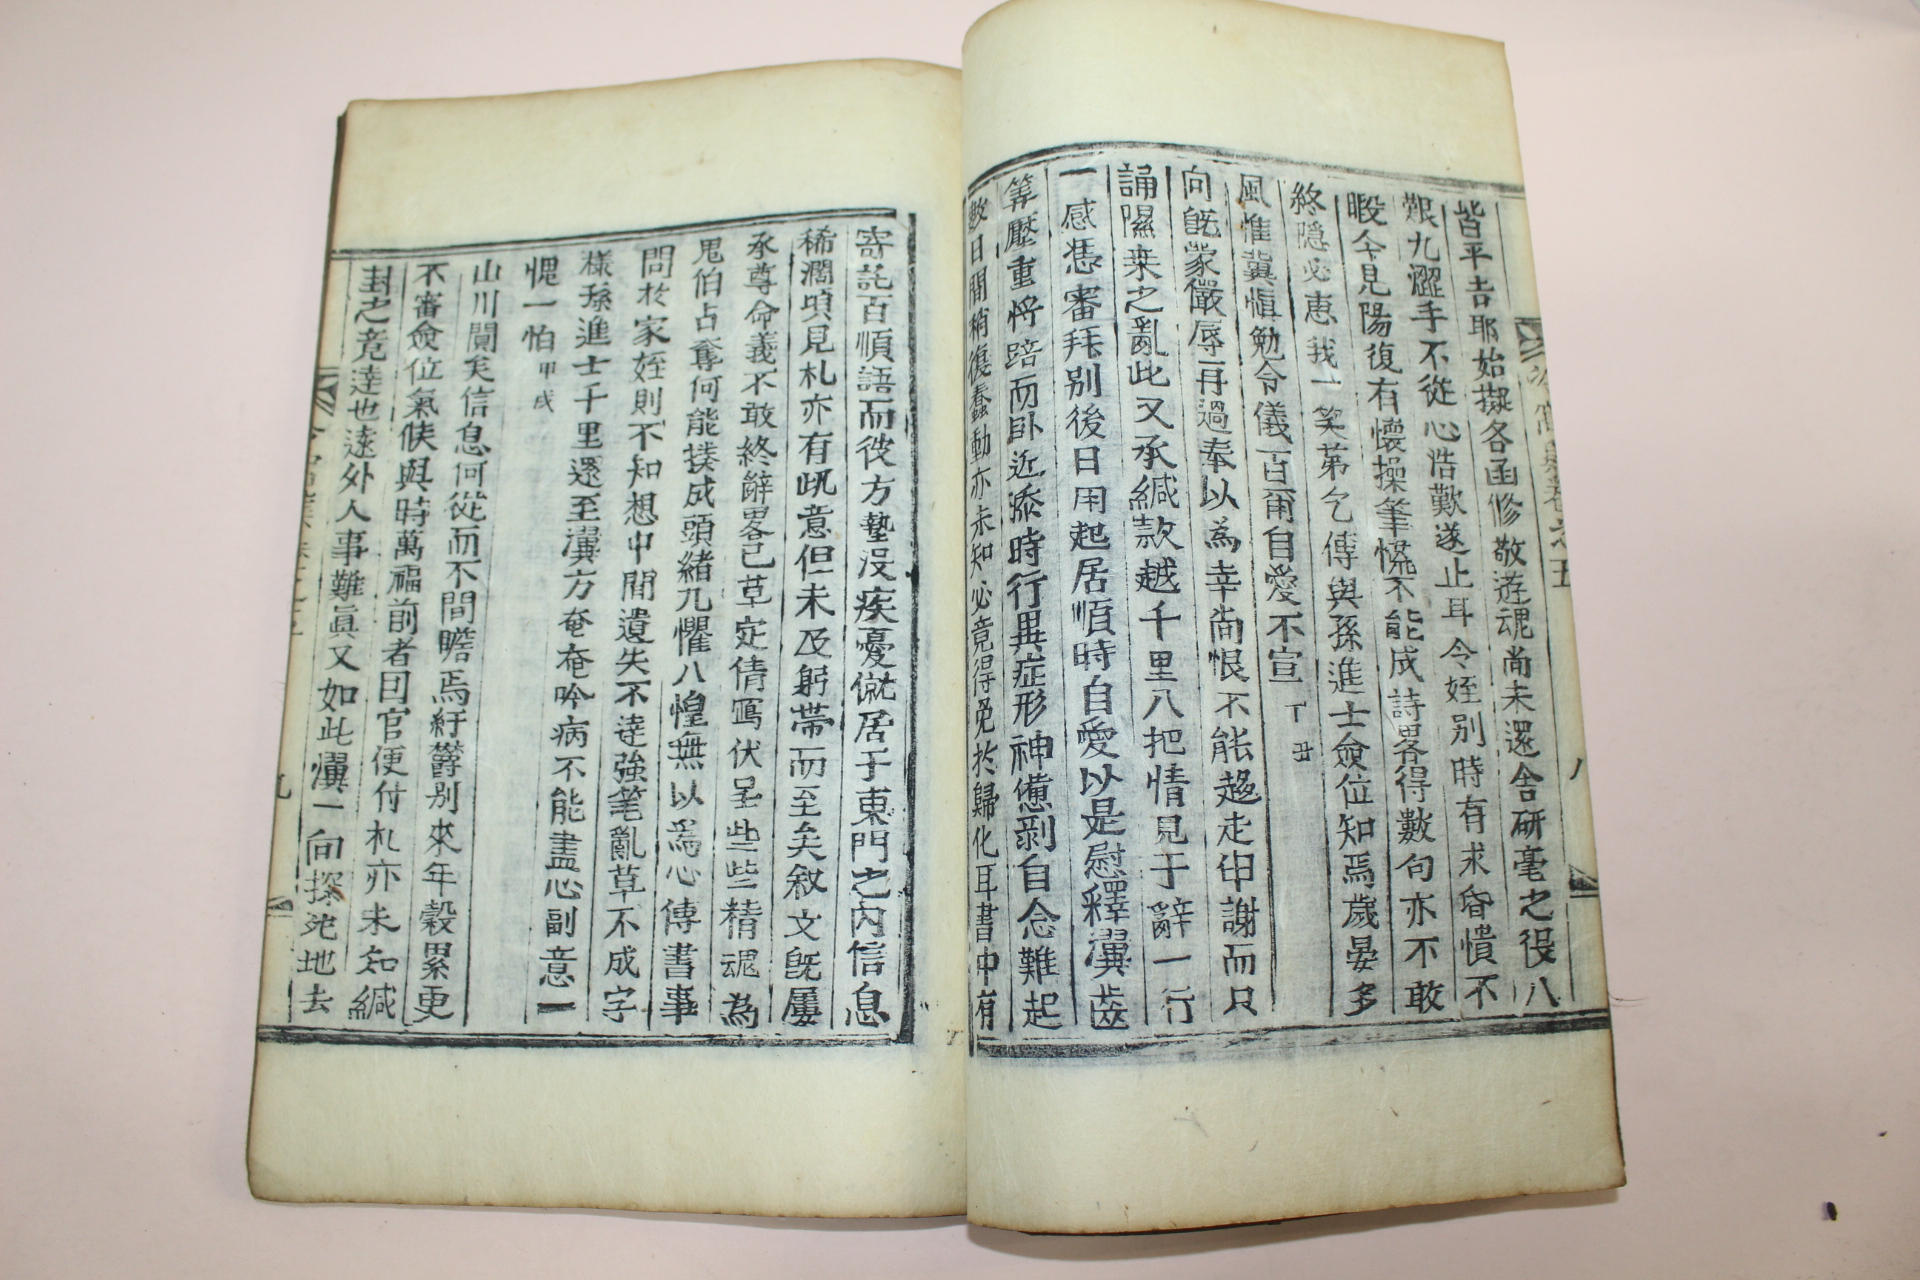 皆平吉耶始擬各函修敬遊魂尚未還舍研毫之役八
艱九澀手不從心浩歎遂止耳令姪别時有求昏憒不
暇今見陽復有懷操筆慌不能成詩畧得數句亦不敢
終隱必惠我一笑第乞傳與孫進士僉位知焉歲晏多
風惟冀愼勉令儀百甭自愛不宣 丁丑
向旣蒙儼辱再過奉以為幸尙恨不能趍走申謝而只
誦隰桒之亂此又承緘款越千里八把情見于辭一行
一感憑審拜别後日用起居順時自愛以是慰釋瀷齒
筭壓重將踣而卧近添時行異症形神憊剥自念難起
數日間稍復蠢動亦未知必竟得免扵歸化耳書中有
寄託百順語而彼方墊没疾憂僦居于東門之内信息
稀濶頃見札亦有此意但未及躬帶而至矣叙文旣屢
承尊命義不敢終辭畧已草定倩寫伏呈些些精魂為
鬼伯占奪何能撲成頭緒九懼八惶無以爲心傳書事
問扵家姪則不知想中間遺失不達強筆亂草不成字
樣孫進士千里還至瀷方奄奄吟病不能盡心副意一
愧一怕 甲戌
山川閴矣信息何從而不間瞻焉紆欝别來年穀累更
不審僉位氣候與時萬福前者因官便付札亦未知緘
封之竟達也遠外人事難眞又如此瀷一向探死地去
八
九